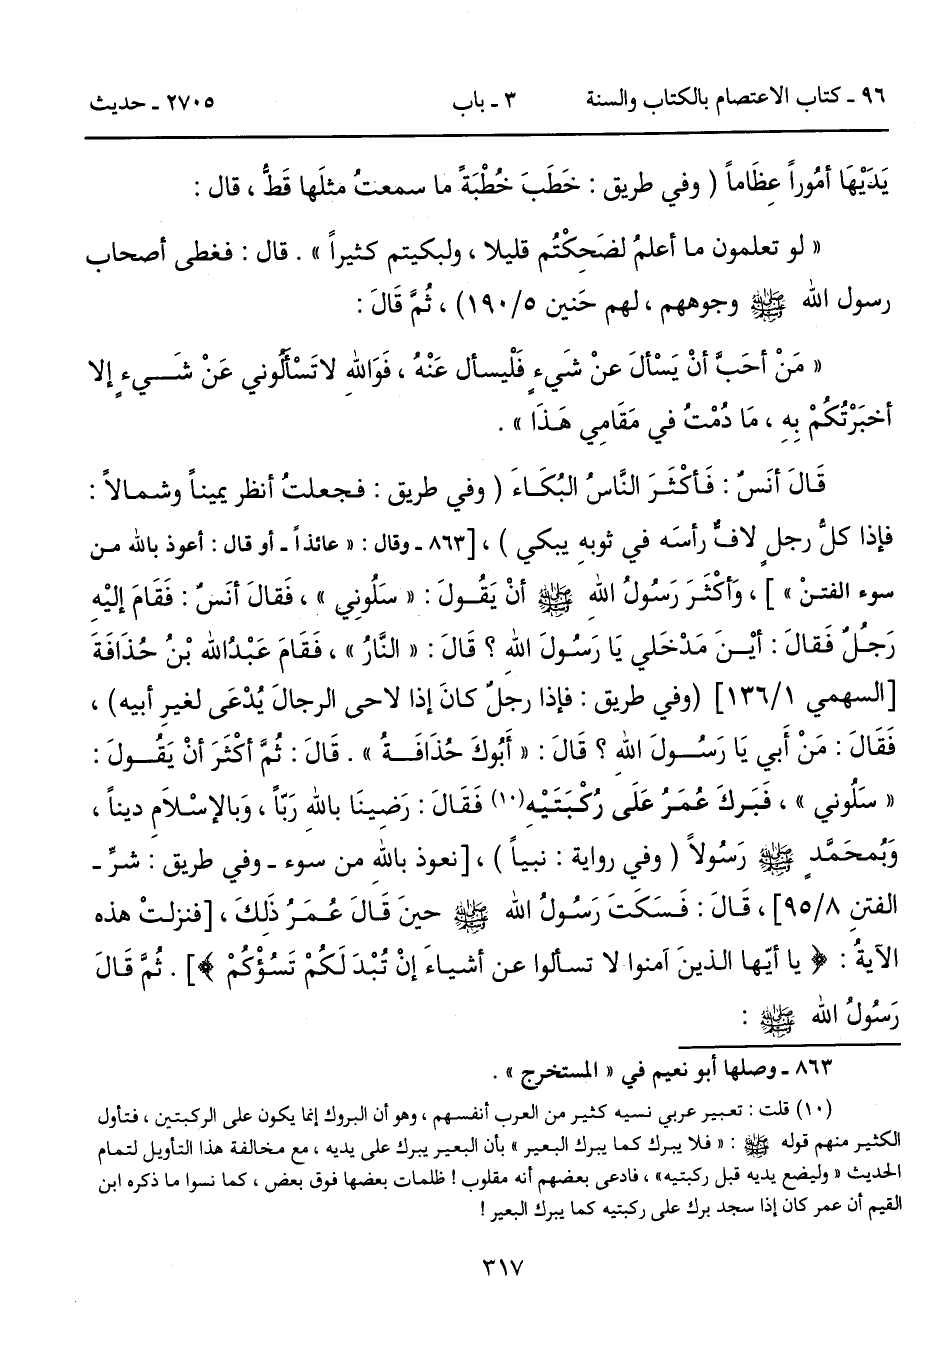 ٩٦ ـ كتاب الاعتصام بالكتاب والسنة ٣ ـ باب ٢٧٠٥ ـ حديث
يَدَيْهَا أمُوراً عِظَاماً ( وفي طريق : خَطَبَ خُطْبَةً ما سمعتُ مثلَها قَطُّ ، قال :
« لو تعلمون ما أعلمُ لضَحِكْتُم قليلا ، ولبكيتم كثيراً » . قال : فغطى أصحاب
رسول الله ﷺ وجوههم ، لهم حَنين ١٩٠/٥) ، ثُمَّ قَالَ :
« مَنْ أحَبَّ أنْ يَسْألَ عنْ شَيءٍ فَلْيسأل عَنْهُ ، فَوَاللهِ لاتَسْأَلُوني عَنْ شَــيءٍ إلا
أخبَرْتُكُمْ بِهِ ، مَا دُمْتُ في مَقَامِي هَـذَا » .
قَالَ أنَسٌ : فَـأكْثَـرَ النَّاسُ البُكَـاءَ ( وفي طريق : فـجعلتُ أنظر يميناً وشـمالاً :
فإذا كلُّ رجلٍ لافٌّ رأسَه في ثوبه يبكي ) ، [٨٦٣ ـ وقال : « عائذاً ـ أو قال : أعوذ بالله مـن
سوء الفتـن » ] ، وَأكْثَـرَ رَسُولُ اللهِ ﷺ أنْ يَقُولَ : « سَلُوني » ، فَقالَ أنَسٌ : فَقَامَ إلَيْهِ
رَجُـلٌ فَقالَ : أيْـنَ مَـدْخَلي يَا رَسُـولَ اللهِ ؟ قَالَ : « النَّارُ » ، فَقَامَ عَبْدُالله بْنُ حُذَافَةَ
[السهمي ١٣٦/١] (وفي طريق : فإذا رجلٌ كانَ إذا لاحى الرجالَ يُدْعَى لغيرِ أبيه) ،
فَقَالَ : مَنْ أبي يَا رَسُـولَ اللهِ ؟ قَالَ : « أَبُوكَ حُذَافَـةُ » . قَالَ : ثُمَّ أكْثَرَ أنْ يَقُـولَ :
« سَلُوني » ، فَبَركَ عُمَرُ عَلَى رُكْبَتَيْهِ(١٠) فَقَالَ : رَضِينَا بالله رَبّاً ، وَبالإسْلاَمِ ديناً ،
وَبُمحَمَّدٍ ﷺ رَسُولاً ( وفي رواية : نبياً ) ، [نعوذ بالله من سوء ـ وفي طريق : شرِّ ـ
الفتنِ ٩٥/٨] ، قَـالَ : فَـسكَتَ رَسُولُ اللهِ ﷺ حينَ قَالَ عُـمَرُ ذَلكَ ، [فنزلتْ هذه
الآيةُ : ﴿ يا أيّها الذينَ آمنوا لا تسألوا عن أشياءَ إنْ تُبْدَ لَكُمْ تَسُؤْكُمْ ﴾] . ثُمَّ قَالَ
رَسُولُ اللهِ ﷺ :
٨٦٣ ـ وصلها أبو نعيم في « المستخرج » .
(١٠) قلت : تعبير عربي نسيه كثير من العرب أنفسهم ، وهو أن البروك إنما يكون على الركبتين ، فتأول
الكثير منهم قوله ﷺ : « فلا يبرك كما يبرك البعير » بأن البعير يبرك على يديه ، مع مخالفة هذا التأويل لتمام
الحديث « وليضع يديه قبل ركبتيه» ، فادعى بعضهم أنه مقلوب ! ظلمات بعضها فوق بعض ، كما نسوا ما ذكره ابن
القيم أن عمر كان إذا سجد برك على ركبتيه كما يبرك البعير !
٣١٧